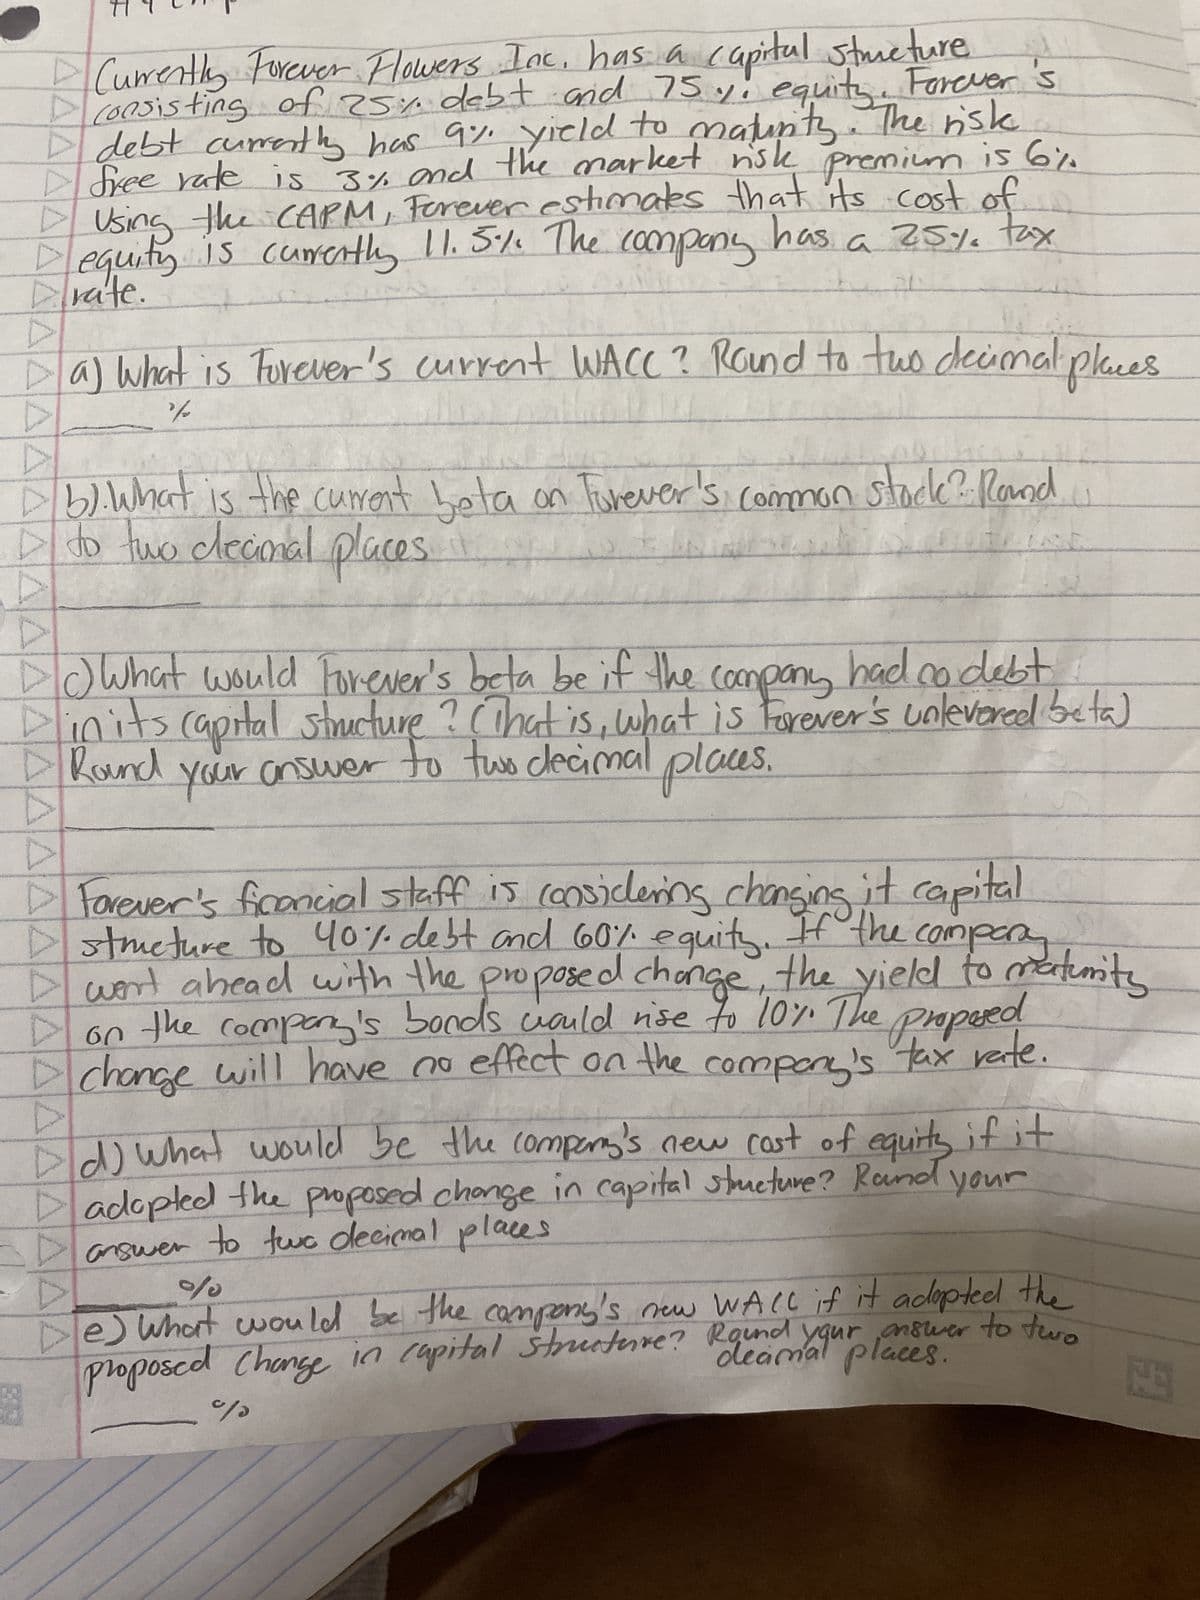 Currently Forever Flowers Inc. has a capital structure
consisting of 25% debt and 75%. equity. Forever's
debt currently has 9% yield to maturity. The risk
free rate is 3% and the market risk premium is 6%
Using the CAPM, Forever estimates that its cost of
equity is currently 11.5%. The company has a 25% tax
rate.
a) What is Forever's current WACC? Round to two decimal places
%
b). What is the current beta on Forever's common stock? Round
to two decimal places
c) What would Forever's beta be if the company had no debt
in its capital structure? (That is, what is Forever's unlevered beta)
Round your answer to two decimal places.
Forever's financial staff is considering changing it capital
structure to 40% debt and 60% equity. If the company
went ahead with the proposed change, the yield to maturity
on the company's bonds would rise to 10% The proposed
change will have no effect on the company's tax rate.
d) What would be the company's new cost of equity if it
adopted the proposed change in capital structure? Round your
answer to two decimal places
%
e) What would be the company's new WACC if it adopted the
proposed change in capital structure? Round your answer to two
decimal places.
%